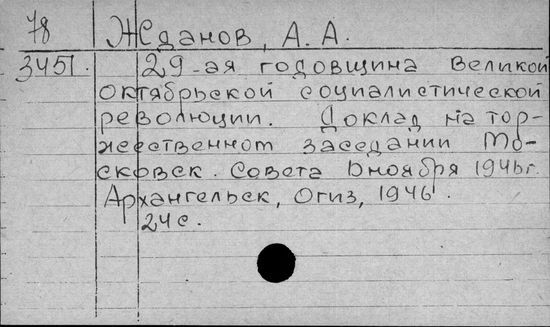 78 Жданов, А. А.
3451. 29-ая годовщина Великой
Октябрьской социалистической
революции. Доклад на тор-
жественном заседании Мо-
сковск. Совета 6 ноября 1946г.
Архангельск, Огиз, 1946.
24с.